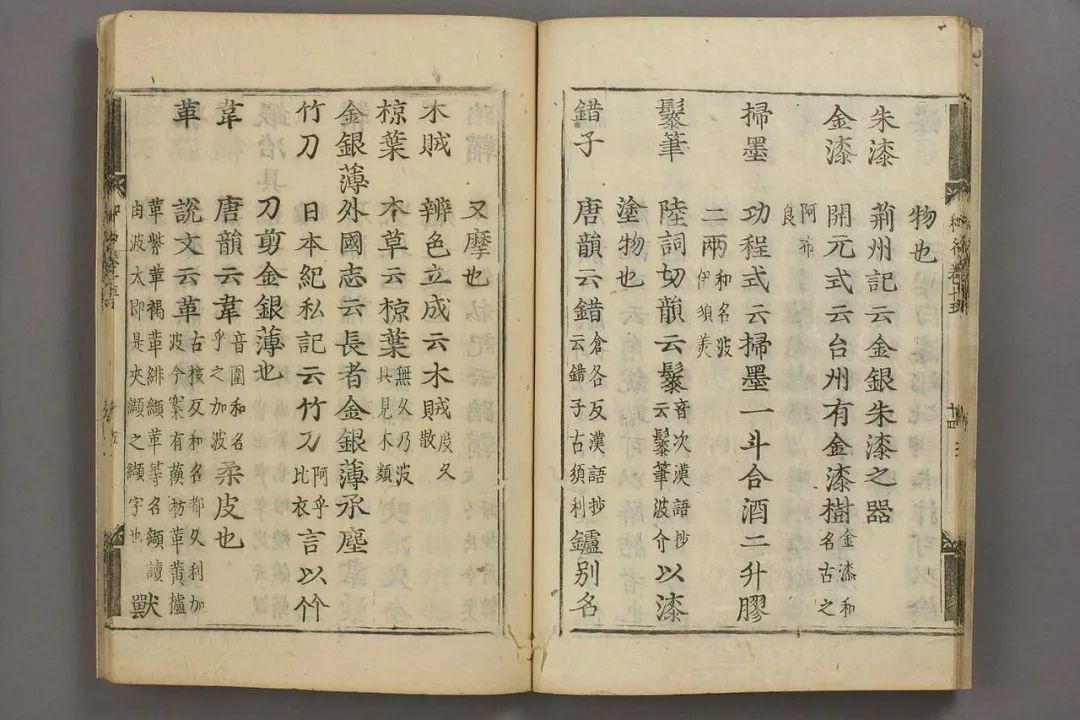 物也
朱漆 荊州記云金銀朱漆之器
金漆 開元式云台州有金漆樹金漆和名古之
阿布
良
掃墨 功程式云掃墨一斗合酒二升膠
二兩和名波
伊須美
髹筆 陸詞切韻云髹音次漢語抄
云髹筆波介以漆
塗物也
錯子 唐韻云錯倉各反漢語抄
云錯子古須利鑢别名
和名卷十五
十四
又摩也
木賊 辨色立成云木賊度久
散
椋葉 本草云椋葉無久乃波
具見木類
金銀薄 外國志云長者金銀薄承塵
竹刀 日本紀私記云竹刀阿乎
比衣言以竹
刀剪金銀薄也
韋 唐韻云韋音圍和名
乎之加波柔皮也
革 說文云革古核反和名都久利加
波今案有䕃枋革黄櫨
革紫革褐革緋纈革等名纈讀
由波太即是夾纈之纈字也獸